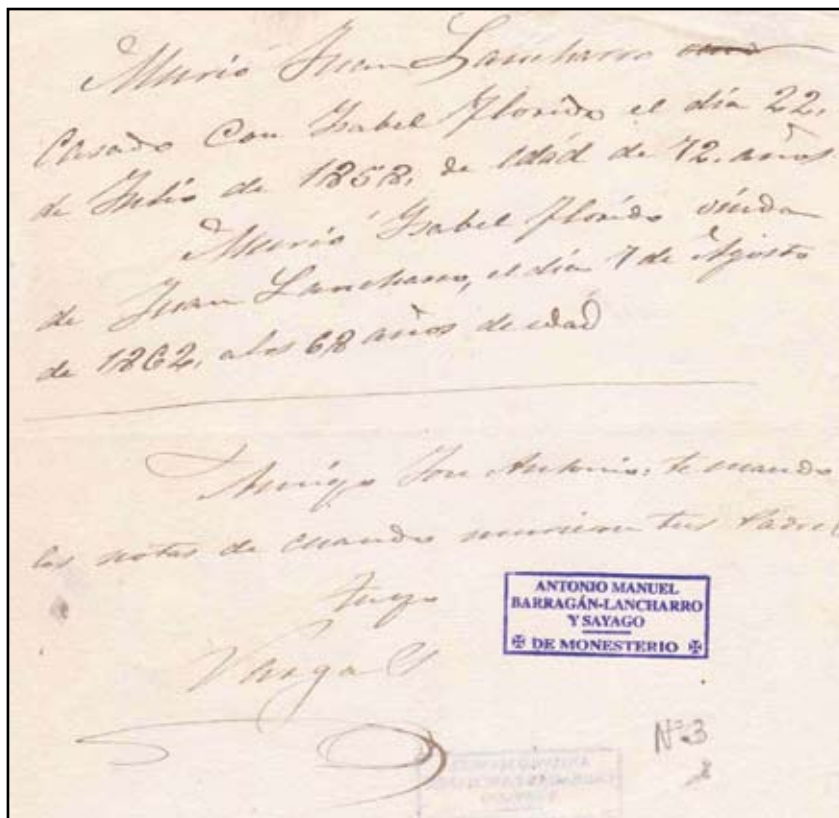 Murió Juan Lancharro
Casado Con Ysabel Florido el día 22.
de Julio de 1858. de edad de 72. años
Murió Ysabel Florido viuda
de Juan Lancharro, el día 7 de Agosto
de 1862. a los 68 años de edad
Amigo José Antonio: te mando
las notas de cuando murieron tus Padres
tuyo
Vargas
ANTONIO MANUEL
BARRAGÁN-LANCHARRO
Y SAYAGO
✠ DE MONESTERIO ✠
Nº 3